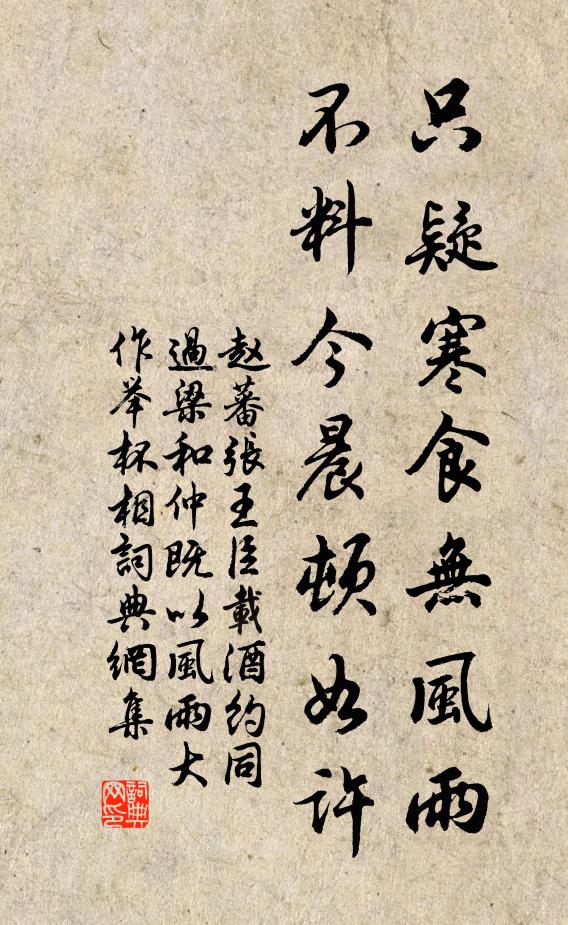 只疑寒食無風雨
不料今晨頓如許
赵蕃張王臣載酒約同
過梁和仲既以風雨大
作举杯相詞典網集
詞典網印